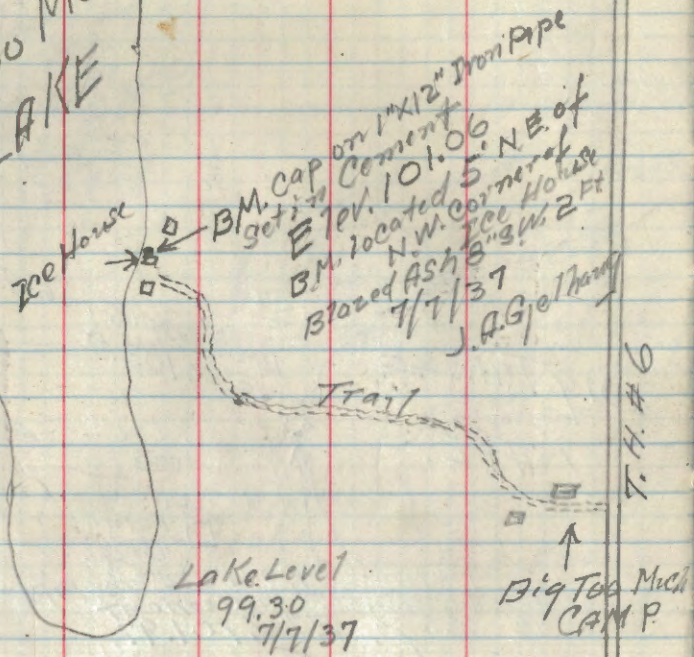 AKE
Ice House
B.M. Cap on 1"X12" Iron Pipe
Set in Cement
Elev. 101.06
B.M. located 5' N.E. of
N.W. Corner of
Ice House
Blazed Ash 8" S.W. 2 Ft
7/7/37
Trail
T.H. #6
Lake Level
99.30
7/7/37
Big Too Much
CAMP